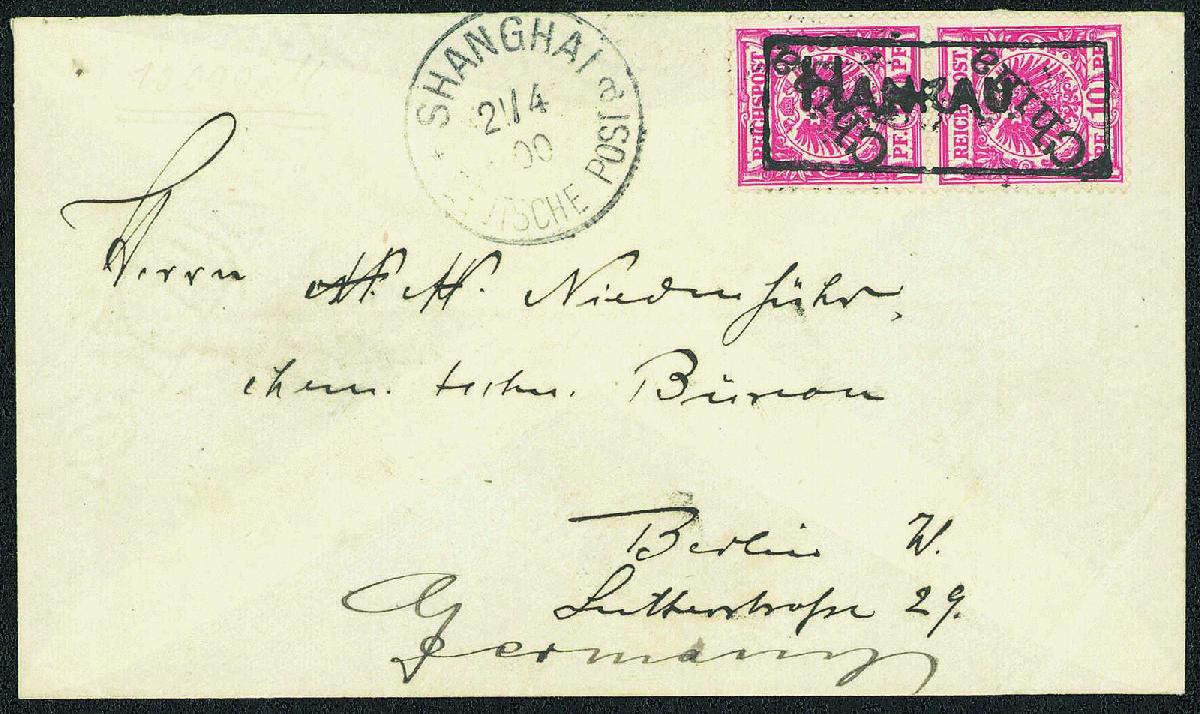 SHANGHAI a
21/4
00
DEUTSCHE POST
REICHSPOST 10 PF
REICHSPOST 10 PF
China China
HANKAU
Herrn M. M. Niedenführ,
chem. techn. Büreau
Berlin W.
Lutherstrasse 29.
Germany